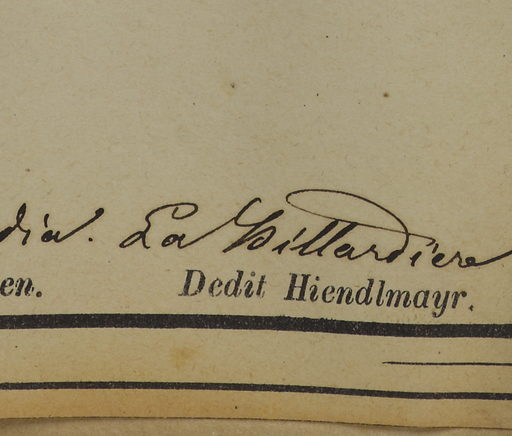 dia. La Billardiere
en. Dedit Hiendlmayr.